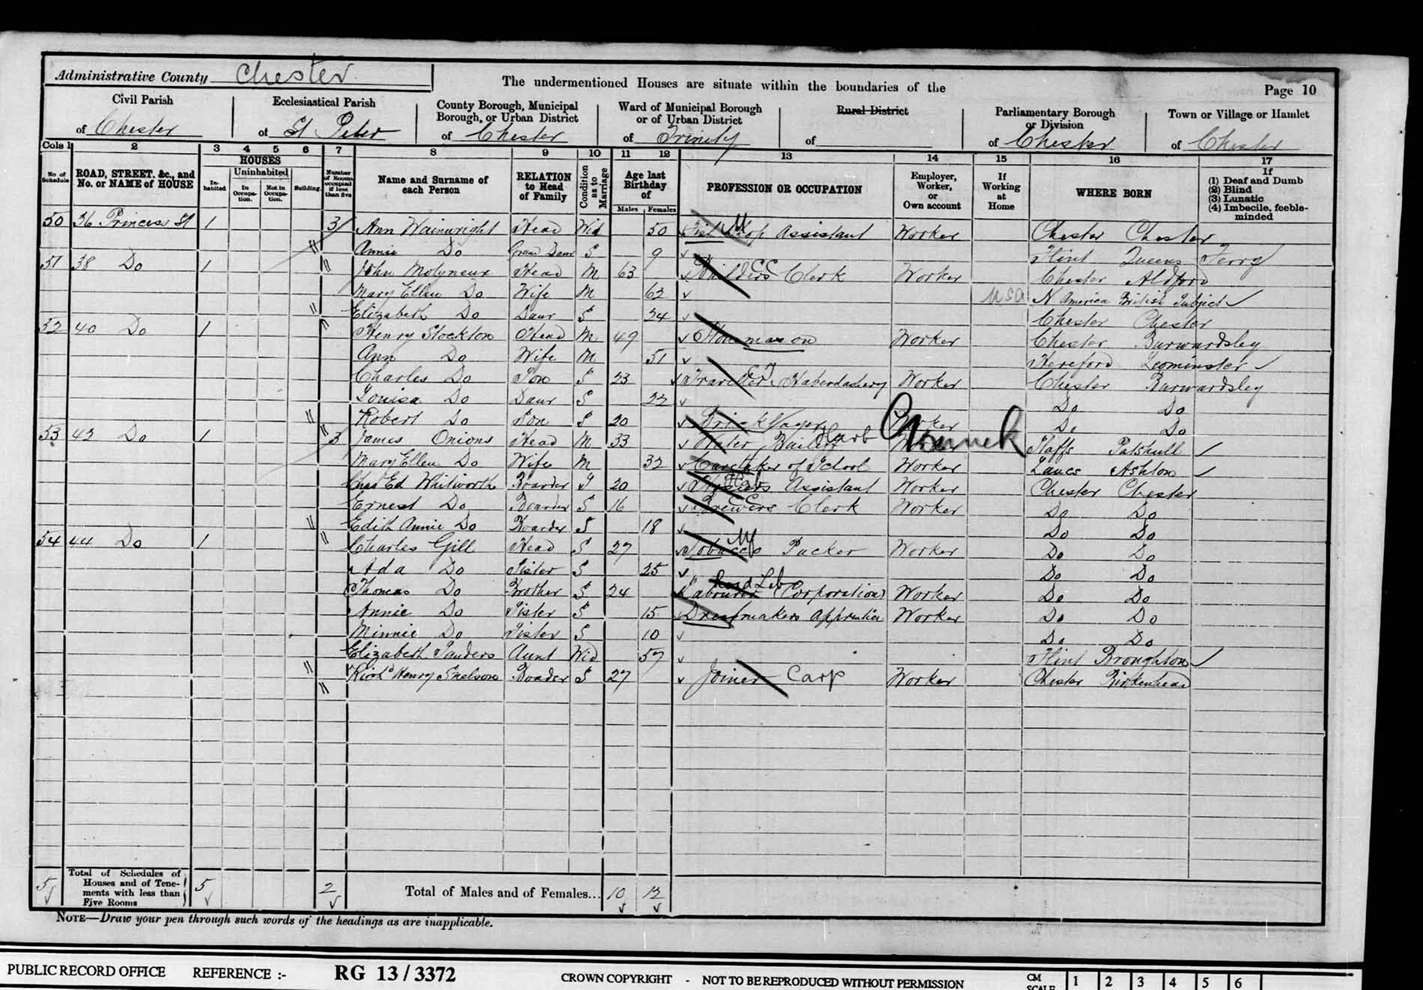 Administrative County Chester
The undermentioned Houses are situate within the boundaries of the
Page 10
Civil Parish of Chester
Ecclesiastical Parish of St Peter
County Borough, Municipal Borough, or Urban District of Chester
Ward of Municipal Borough or of Urban District of Trinity
Rural District of
Parliamentary Borough or Division of Chester
Town or Village or Hamlet of Chester
Cols 1 2 3 4 5 6 7 8 9 10 11 12 13 14 15 16 17
No. of Schedule
ROAD, STREET, &c., and No. or NAME of HOUSE
HOUSES
Inhabited
Uninhabited
In Occupation.
Not in Occupation.
Building.
Number of Rooms occupied if less than five
Name and Surname of each Person
RELATION to Head of Family
Condition as to Marriage
Age last Birthday of
Males Females
PROFESSION OR OCCUPATION
Employer, Worker, or Own account
If Working at Home
WHERE BORN
If (1) Deaf and Dumb (2) Blind (3) Lunatic (4) Imbecile, feeble-minded
50 36 Princess St 1 3 Ann Wainwright Head Wid 50 Assistant Worker Chester Chester
Annie Do Gran Daur S 9 Flint Queens Ferry
51 38 Do 1 John Molyneux Head M 63 Builders Clerk Worker Chester Aldford
Mary Ellen Do Wife M 62 USA N America British Subject
Elizabeth Do Daur S 24 Chester Chester
52 40 Do 1 Henry Stockton Head M 49 Stonemason Worker Chester Burwardsley
Ann Do Wife M 51 Hereford Leominster
Charles Do Son S 23 Traveller Haberdashery Worker Chester Burwardsley
Louisa Do Daur S 22 Do Do
Robert Do Son S 20 Worker Do Do
53 42 Do 1 3 James Onions Head M 33 Bailiff Worker Staffs Patshull
Mary Ellen Do Wife M 32 Caretaker of School Worker Lancs Ashton
Ed Whitworth Boarder S 20 Assistant Worker Chester Chester
Ernest Do Boarder S 16 Brewers Clerk Worker Do Do
Edith Annie Do Boarder S 18 Do Do
54 44 Do 1 Charles Gill Head S 27 Tobacco Packer Worker Do Do
Ada Do Sister S 25 Do Do
Road Lab
Thomas Do Brother S 24 Labourer (Corporation) Worker Do Do
Annie Do Sister S 15 Dressmakers Apprentice Worker Do Do
Minnie Do Sister S 10 Do Do
Elizabeth Sanders Aunt Wid 57 Flint Broughton
Henry Boarder S 27 Joiner Carp Worker Chester Birkenhead
5 Total of Schedules of Houses and of Tenements with less than Five Rooms 5 2 Total of Males and of Females... 10 12
NOTE—Draw your pen through such words of the headings as are inapplicable.
PUBLIC RECORD OFFICE REFERENCE :- RG 13/3372 CROWN COPYRIGHT - NOT TO BE REPRODUCED WITHOUT PERMISSION CM SCALE 1 2 3 4 5 6